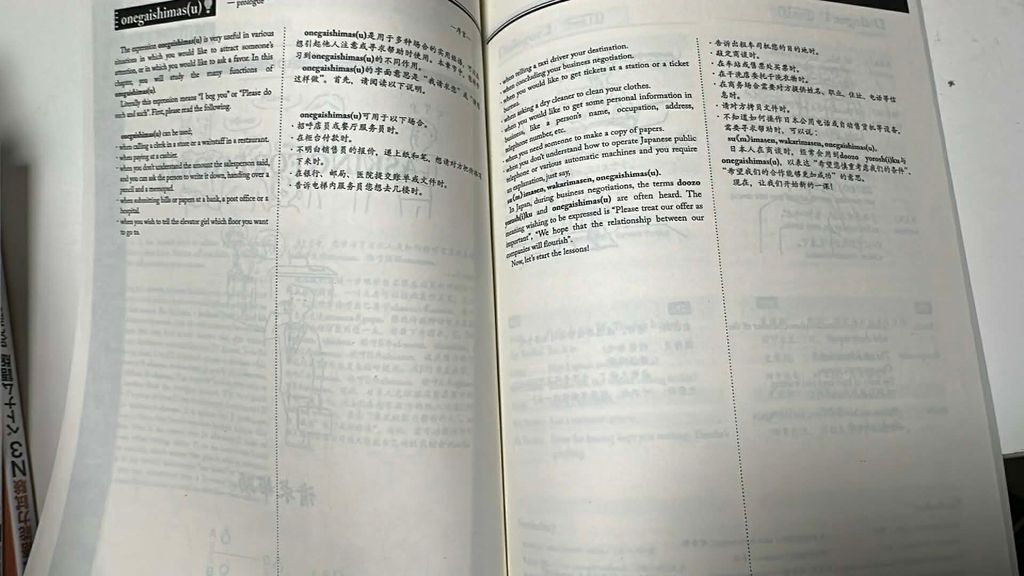 onegaishimas(u)
— prologue
The expression onegaishimas(u) is very useful in various
situations in which you would like to attract someone's
attention, or in which you would like to ask a favor. In this
chapter you will study the many functions of
onegaishimas(u).
Literally this expression means "I beg you" or "Please do
such and such". First, please read the following.
onegaishimas(u) can be used;
· when calling a clerk in a store or a waitstaff in a restaurant.
· when paying at a cashier.
· when you don't understand the amount the salesperson said,
and you can ask the person to write it down, handing over a
pencil and a memopad.
· when submitting bills or papers at a bank, a post office or a
hospital.
· when you wish to tell the elevator girl which floor you want
to go to.
onegaishimas(u)是用于多种场合的实用
想引起他人注意或寻求帮助时使用。本章中
习到onegaishimas(u)的不同作用。
onegaishimas(u)的字面意思是“我请求您”或“请
这样做”。首先，请阅读以下说明。
onegaishimas(u)可用于以下场合。
· 招呼店员或餐厅服务员时。
· 在柜台付款时。
· 不明白销售员的报价，递上纸和笔，想请对方把价格写
下来时。
· 在银行、邮局、医院提交账单或文件时。
· 告诉电梯内服务员您想去几楼时。
· when telling a taxi driver your destination.
· when concluding your business negotiation.
· when you would like to get tickets at a station or a ticket
bureau.
· when asking a dry cleaner to clean your clothes.
· when you would like to get some personal information in
business, like a person's name, occupation, address,
telephone number, etc.
· when you need someone to make a copy of papers.
· when you don't understand how to operate Japanese public
telephone or various automatic machines and you require
an explanation, just say,
su(m)imasen, wakarimasen, onegaishimas(u).
In Japan, during business negotiations, the terms doozo
yorosh(i)ku and onegaishimas(u) are often heard. The
meaning wishing to be expressed is "Please treat our offer as
important", "We hope that the relationship between our
companies will flourish".
Now, let's start the lessons!
· 告诉出租车司机您的目的地时。
· 敲定商谈时。
· 在车站或售票处买票时。
· 在干洗店委托干洗衣物时。
· 在商务场合需要对方提供姓名、职业、住址、电话等信
息时。
· 请对方拷贝文件时。
· 不知道如何操作日本公用电话或自动售货机等设备，
需要寻求帮助时，可以说：
su(m)imasen, wakarimasen, onegaishimas(u).
日本人在商谈时，经常会用到doozo yorosh(i)ku与
onegaishimas(u)，以表达“希望您慎重考虑我们的条件”、
“希望我们的合作能够更加成功”的意思。
现在，让我们开始新的一课！